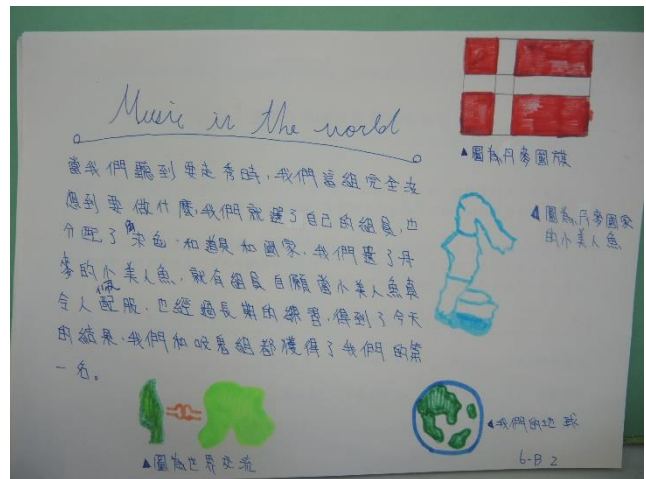 Music in the world
當我們聽到要走秀時,我們當組完全沒
想到要做什麼,我們就選了自己的組員,也
分配了角色,和道具和國家,我們選了丹
麥的小美人魚,就有組員自願當小美人魚真
令人佩服,也經過長期的練習,得到了今天
的結果,我們和吹笛組都獲得了我們的第
一名。
▲圖為丹麥國旗
◀圖為丹麥國家
的小美人魚
▲圖為世界交流
◀我們的地球
6-B 2